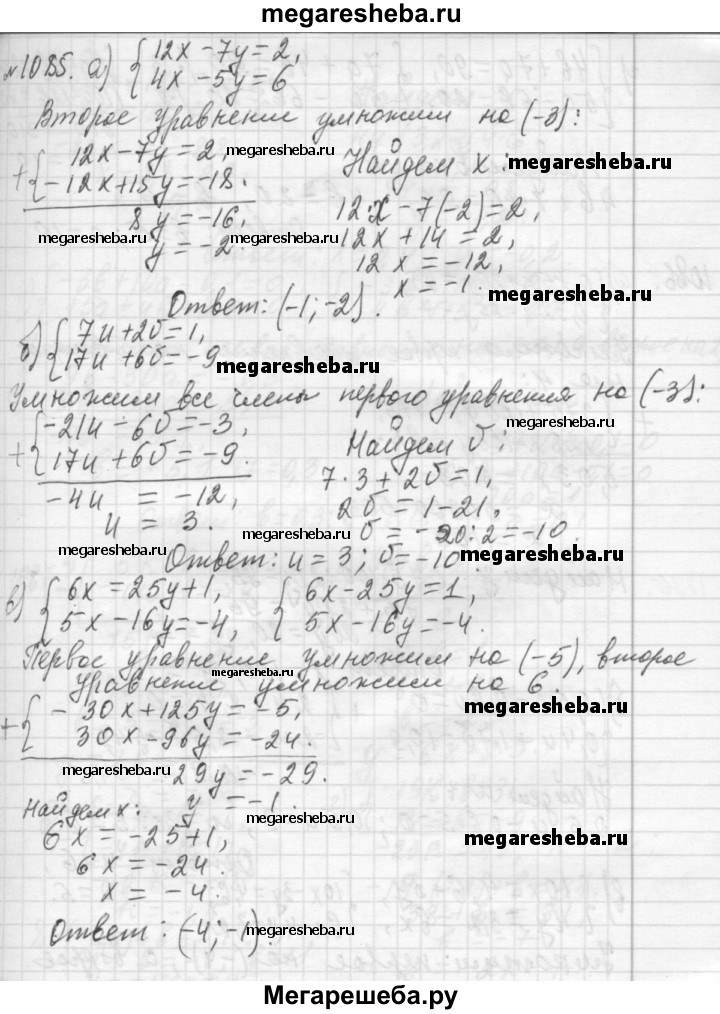 megaresheba.ru
№1085. а) { 12x - 7y = 2,
4x - 5y = 6
Второе уравнение умножим на (-3):
+ { 12x - 7y = 2, megaresheba.ru Найдем x: megaresheba.ru
-12x + 15y = -18.
8y = -16, 12·x - 7(-2) = 2,
megaresheba.ru y = -2. megaresheba.ru 12x + 14 = 2, megaresheba.ru
12x = -12,
x = -1. megaresheba.ru
Ответ: (-1; -2).
б) { 7u + 2v = 1,
17u + 6v = -9. megaresheba.ru
Умножим все члены первого уравнения на (-3):
+ { -21u - 6v = -3, Найдем v:
17u + 6v = -9.
-4u = -12, 7·3 + 2v = 1,
u = 3. 2v = 1-21,
megaresheba.ru megaresheba.ru v = -20:2 = -10.
Ответ: u = 3; v = -10. megaresheba.ru
в) { 6x = 25y + 1, { 6x - 25y = 1,
5x - 16y = -4, 5x - 16y = -4.
Первое уравнение умножим на (-5), второе
уравнение умножим на 6.
megaresheba.ru
+ { -30x + 125y = -5, megaresheba.ru
30x - 96y = -24.
megaresheba.ru 29y = -29. megaresheba.ru
Найдем x: y = -1. megaresheba.ru
6x = -25 + 1, megaresheba.ru
6x = -24.
x = -4.
Ответ: (-4; -1). megaresheba.ru
Мегарешеба.ру